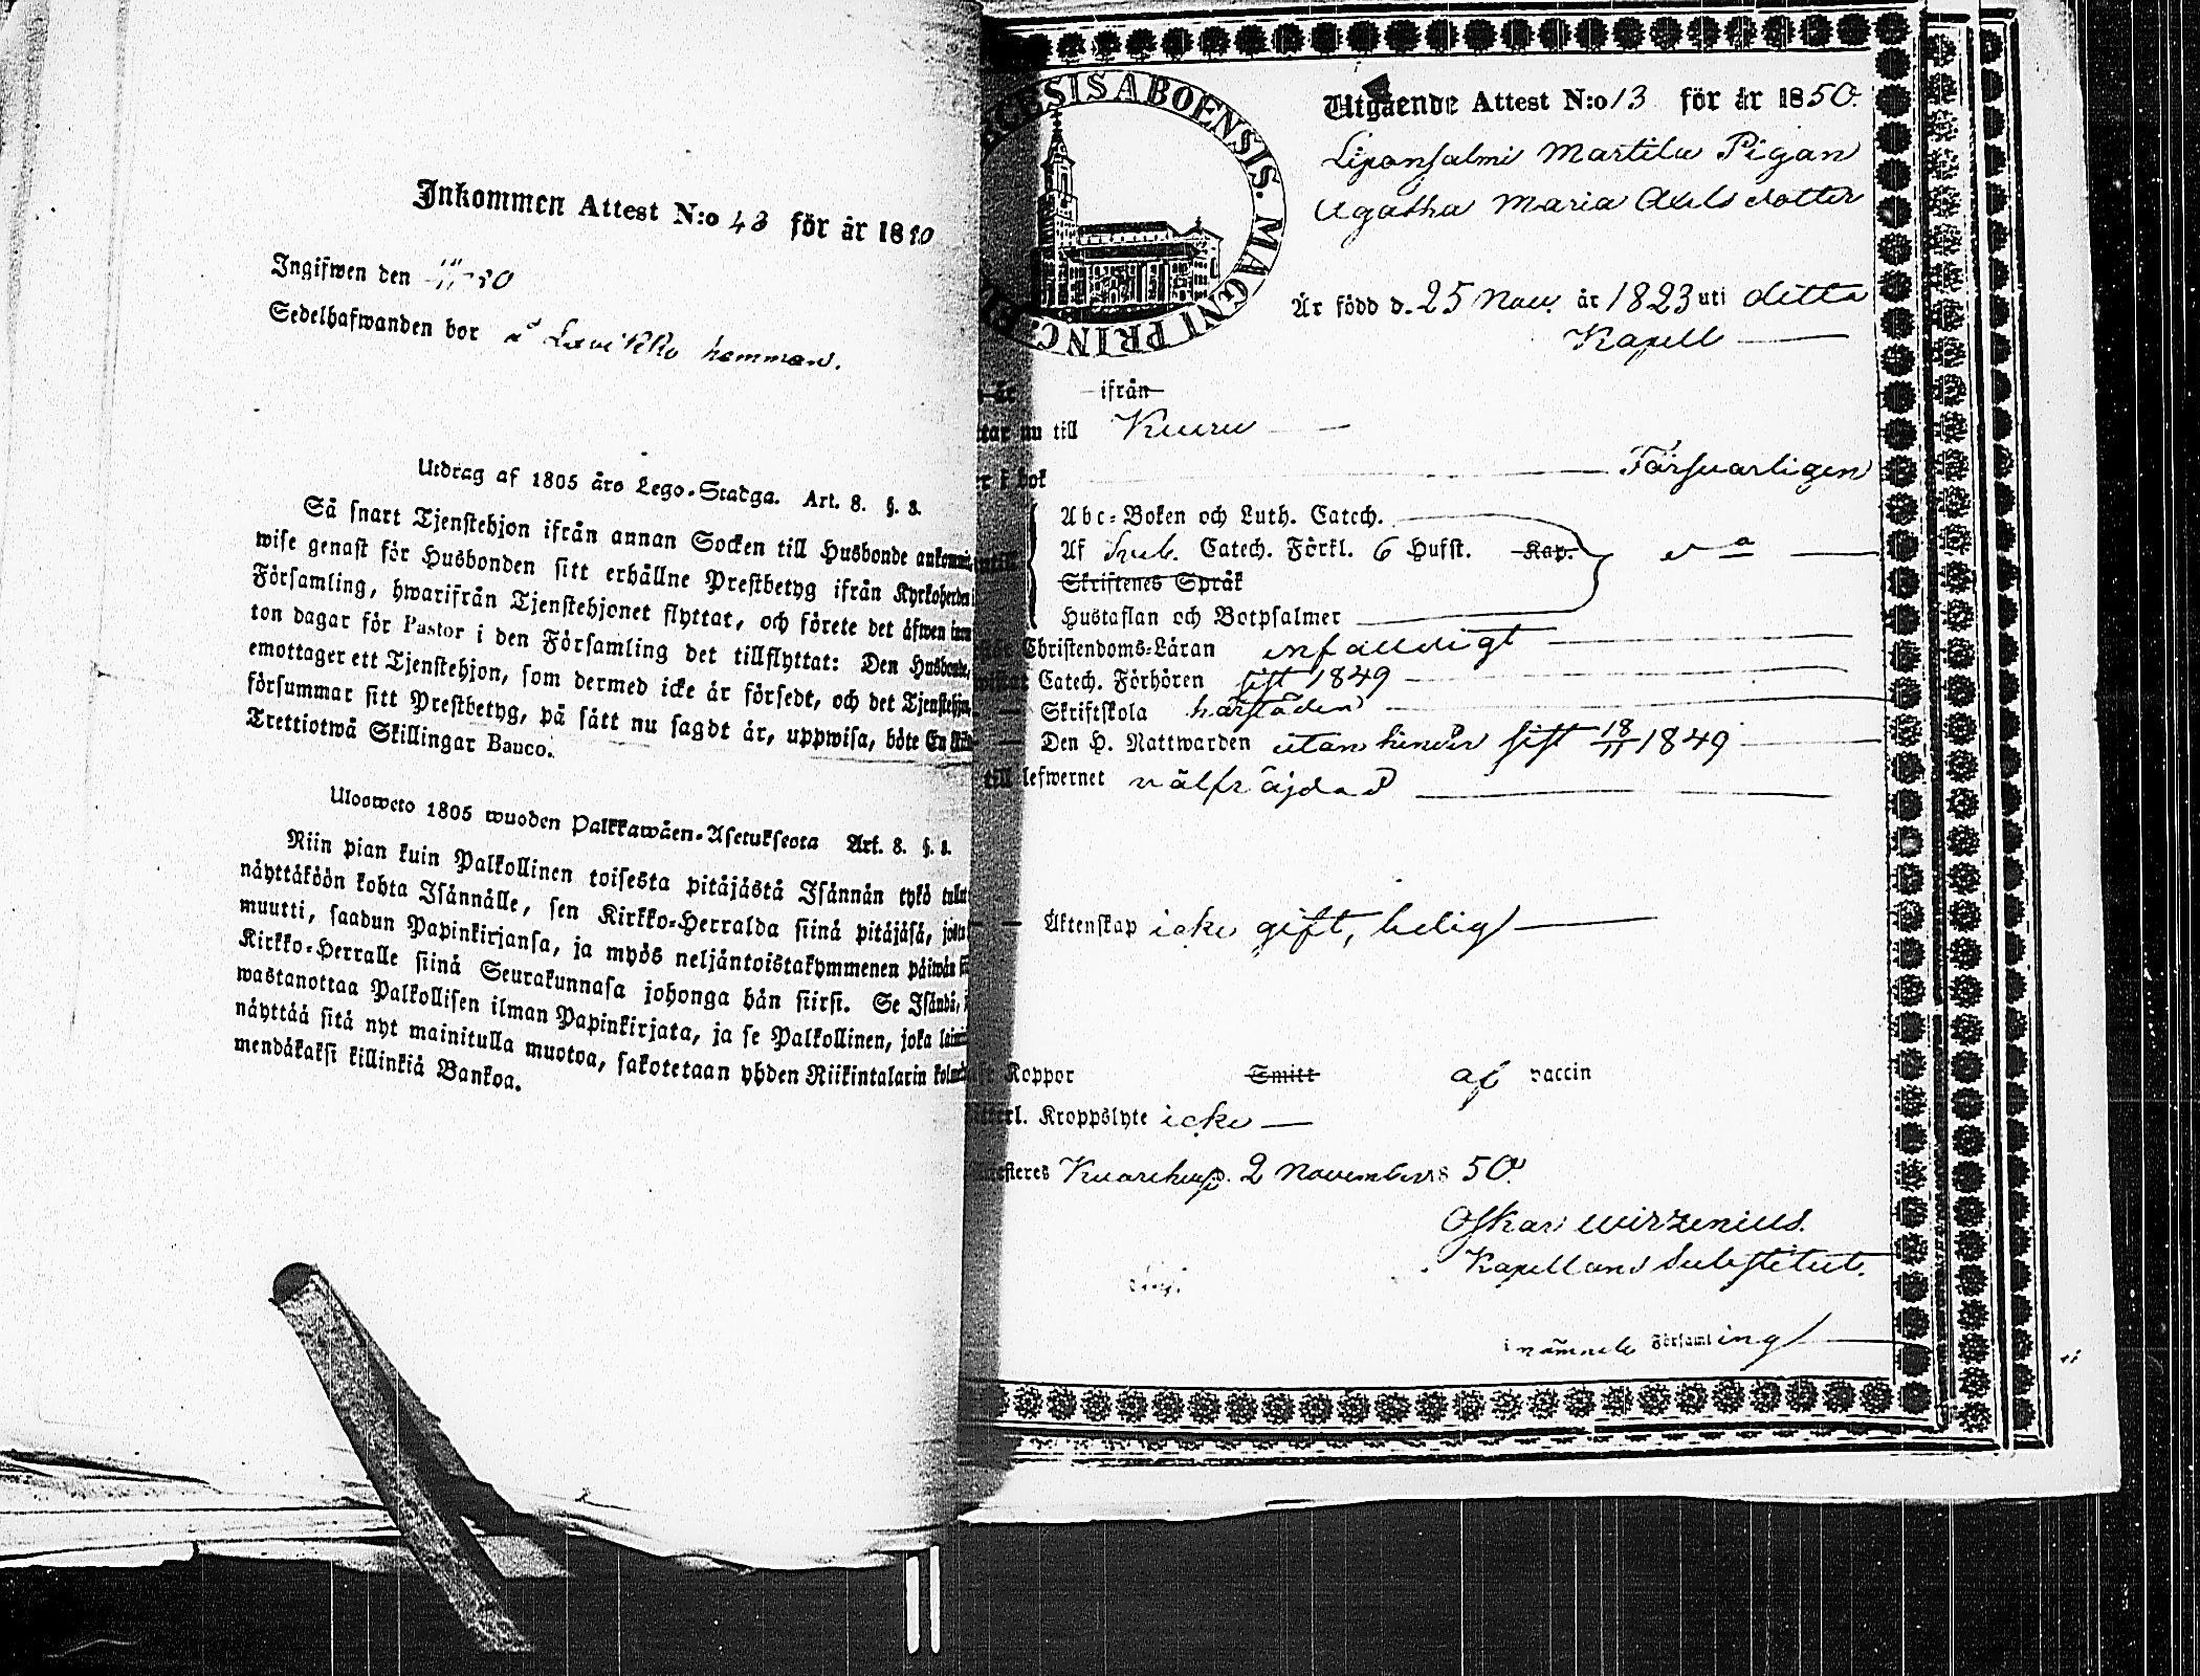 Inkommen Attest N:o 43 för år 1850
Ingifwen den
Sedelhafwanden bor å Lavikko hemman.
Utdrag af 1805 års Lego-Stadga. Art. 8. §. 3.
Så snart Tjenstehjon ifrån annan Socken till Husbonde ankommit
wise genast för Husbonden sitt erhållne Prestbetyg ifrån Kyrkoherden i
Församling, hwarifrån Tjenstehjonet flyttat, och förete det äfwen inom
ton dagar för Pastor i den Församling det tillflyttat: Den Husbonde,
emottager ett Tjenstehjon, som dermed icke är försedt, och det Tjenstehjon,
försummar sitt Prestbetyg, på sätt nu sagdt är, uppwisa, böte En
Trettiotwå Skillingar Banco.
Ulosweto 1805 wuoden Palkkawäen-Asetuksesta Art. 8. §. 3.
Niin pian kuin Palkollinen toisesta pitäjästä Isännän tykö tulut
näyttäköön kohta Isännälle, sen Kirkko-Herralda siinä pitäjäsä, josta
muutti, saadun Papinkirjansa, ja myös neljäntoistakymmenen päiwän
Kirkko-Herralle siinä Seurakunnasa johonga hän siirsi. Se Isändä,
wastanottaa Palkollisen ilman Papinkirjata, ja se Palkollinen, joka
näyttää sitä nyt mainitulla muotoa, sakotetaan yhden Riikintalarin
mendäkaksi killinkiä Bankoa.
ECESIS ABOENSIS. MAGNI PRINC.
Utgående Attest N:o 13 för år 1850.
Liponsalmi Martila Pigan
Agatha Maria Axelsdotter
Är född d. 25 Nov. år 1823 uti ditta
Kapell
är ifrån
tar nu till Kuru
r i bok Försvarligen
Abc-Boken och Luth. Catech.
Af Sveb. Catech. Förkl. 6 Hufst. Kap.
Skriftenes Språk
Hustaflan och Botpsalmer
Christendoms-Läran enfaldigt
Catech. Förhören sist 1849
Skriftskola härstädes
Den H. Nattwarden utan hinder sist 18/11 1849
till lefwernet välfräjdad
Äktenskap icke gift, ledig
Koppor Smitt af vaccin
Kroppslyte icke
d. 2 November 1850.
Oskar Wirzenius.
Kapellans Substitut.
i nämnde Församling